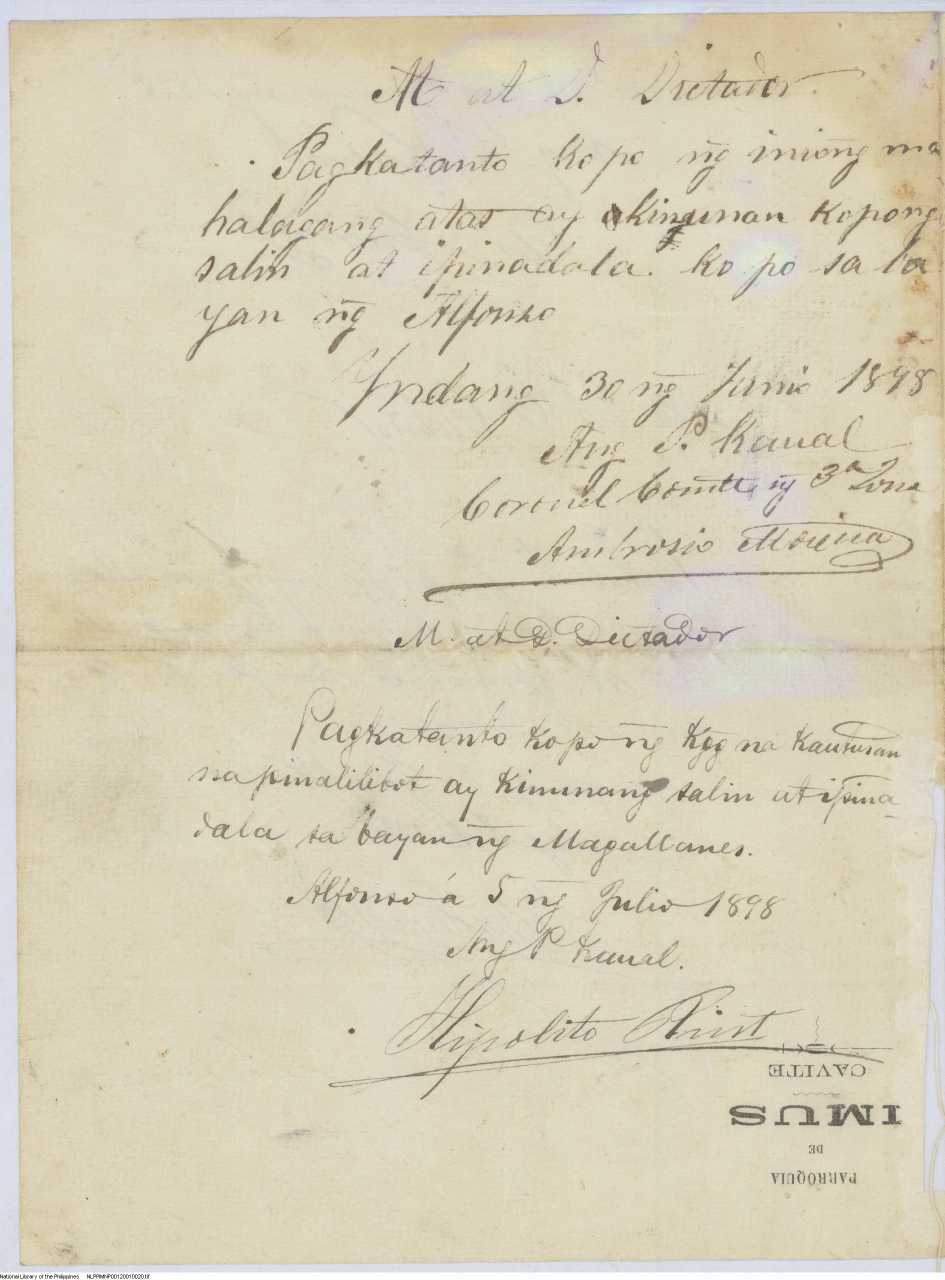 M at D. Dictador.
Pagkatanto ko po ñg iniong ma
halagang atas ay kinunan kopong
salin at ipinadala ko po sa ba
yan ñg Alfonso
Yndang 30 ñg Junio 1898
Ang P. Kaual
Coronel Comtte ñg 3ª Zona
Ambrosio Mojica
M. at D. Dictador
Pagkatanto kopo ñg Kgg na kautusan
na pinalilibot ay kinunang salin at ipina-
dala sa bayan ñg Magallanes.
Alfonso á 5 ñg Julio 1898
Ang P Kaual.
Hipolito Rint
CAVITE
IMUS
DE
PARROQUIA
National Library of the Philippines NLPPMNP0012001002018